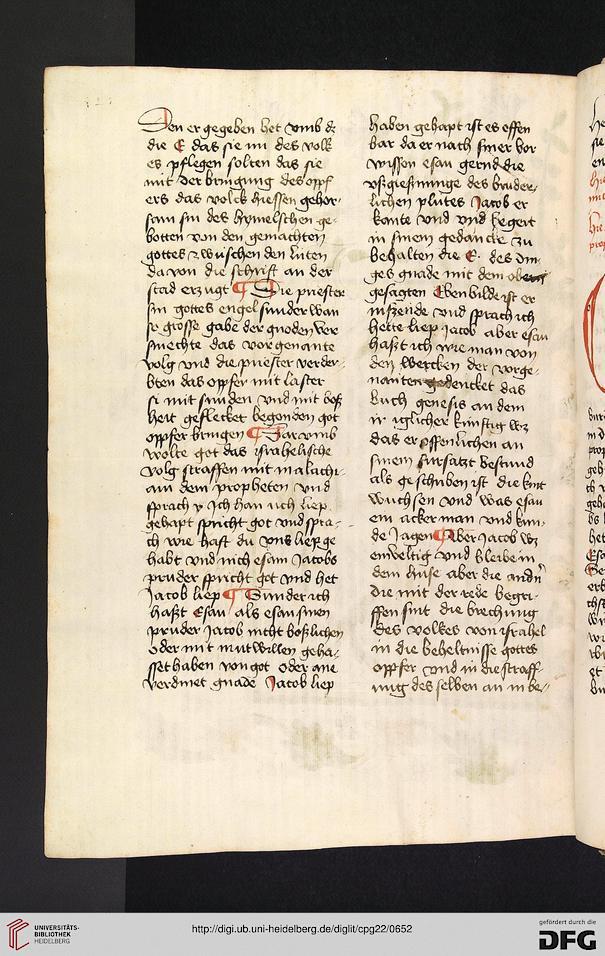 Den er gegeben het vmb dz
die E das sie im des volk
es pflegen solten das sie
mit der bringung des opff
ers das volck hiessen gehor
sam sin des hymelschen ge-
botten von den gemachten
gottes wuschen den luten
da von die schrift an der
stad erzugt Die priester
sin gottes engel sunder wan
grosse gabe der gnoden ver
smechte das vorgenante
volg vnd die priester verder-
bten das opffer mit laster
mit sunden vnd mit boß
heit geflecket begonden got
opffer bringen Dar vmb
wolte got das israhelische
volg straffen mit malachi-
am dem propheten vnd
sprach Ich han uch liep
gehapt spricht got vnd spra-
ch wie hast du vns liep ge
habt vnd nich esaw Jacobs
pruder spricht got vnd het
Jacob liep Sunder ich
haßt Esau als esau sinen
pruder Jacob nicht boßlichen
oder mit mutwillen geha-
sset haben von got oder ane
verdinet gnade Jacob liep
haben gehapt ist es offen
bar da er nach siner vor
wissen esau gernd die
vßgiessunge des bruder
lichen plutes Jacob er
kante vnd vnd begert
in sinem gedancke zu
behalten die E. des din
ges gnade mit dem oben
gesagten Ebenbilde ist er
vnd sprach ich
hette liep Jacob aber esau
haßt ich wie man von
den wercken der vorge-
nanten gedencket das
buch genesis an dem
ir iglicher kunftig wz
das er offenlichen an
sinem fursatzt bestund
als geschriben ist die kint
wuchsen vnd was esau
ein acker man vnd kun-
de Jagen Aber Jacob wz
einveltig vnd bleibe in
dem huse aber die andn
die mit der rede begri-
ffen sint die brechung
des volkes von israhel
in die beheltnisse gottes
opffer vnd in die straff
ung des selben an in be-
UNIVERSITÄTS-
BIBLIOTHEK
HEIDELBERG
http://digi.ub.uni-heidelberg.de/diglit/cpg22/0652
gefördert durch die
DFG